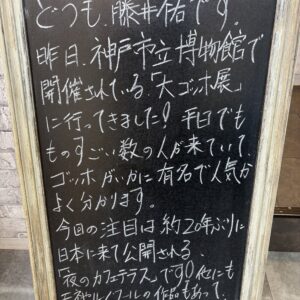 どうも、藤井祐です。
昨日、神戸市立博物館で
開催されている「大ゴッホ展」
に行ってきました！平日でも
ものすごい数の人が来ていて、
ゴッホがいかに有名で人気か
よく分かります。
今回の注目は約20年ぶりに
日本に来て公開される
「夜のカフェテラス」です。他にも
モネやルノワールの作品もあって、